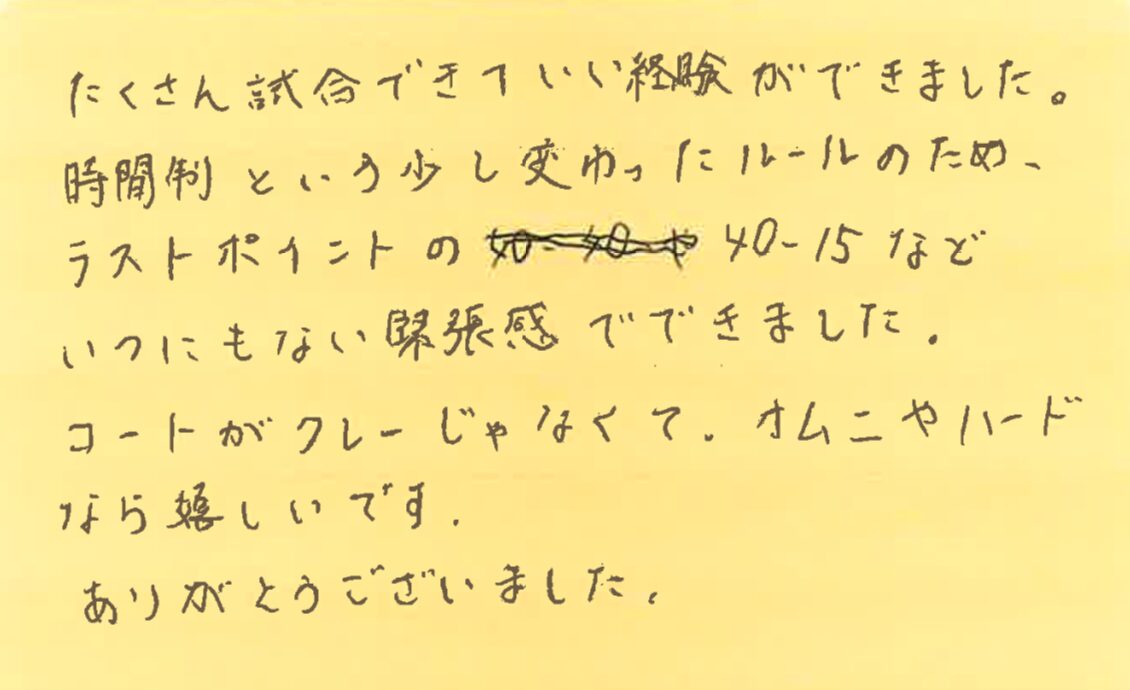 たくさん試合できていい経験ができました。
時間制という少し変わったルールのため、
ラストポイントの 40-15など
いつにもない緊張感でできました。
コートがクレーじゃなくて、オムニやハード
なら嬉しいです。
ありがとうございました。